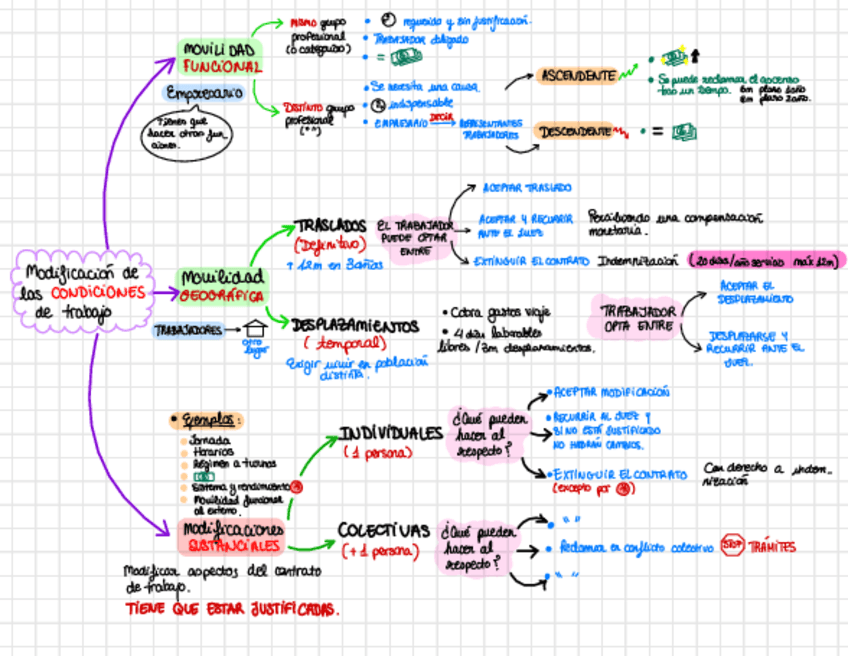 MOVILIDAD
FUNCIONAL
Empresario
Tienes que
hacer otras fun
ciones.
MISMO grupo
profesional
(o categoría)
requerido y sin justificación.
TRABAJADOR obligado
=
DISTINTO grupo
profesional
Se necesita una causa.
indispensable
EMPRESARIO DECIR REPRESENTANTES
TRABAJADORES
ASCENDENTE
Se puede reclamar el ascenso
tras un tiempo.
DESCENDENTE
=
Modificación de
las CONDICIONES
de trabajo
Movilidad
GEOGRÁFICA
TRABAJADORES
otro
lugar
TRASLADOS
(Definitivo)
↑ 12m en 3años
EL TRABAJADOR
PUEDE OPTAR
ENTRE
ACEPTAR TRASLADO
ACEPTAR Y RECURRIR
ANTE EL JUEZ
Percibiendo una compensación
monetaria.
EXTINGUIR EL CONTRATO Indemnización (20 días/año servicio máx 12m)
DESPLAZAMIENTOS
(temporal)
Exigir vivir en población
distinta.
• Cobra gastos viaje
• 4 días laborables
libres /3m desplazamientos.
TRABAJADOR
OPTA ENTRE
ACEPTAR EL
DESPLAZAMIENTO
DESPLAZARSE Y
RECURRIR ANTE EL
JUEZ.
• Ejemplos:
Jornada
Horarios
Régimen a turnos
Sistema y rendimiento
Movilidad funcional
al extremo.
Modificaciones
SUSTANCIALES
Modificar aspectos del contrato
de trabajo.
TIENE QUE ESTAR JUSTIFICADAS.
INDIVIDUALES
(1 persona)
¿Qué pueden
hacer al
respecto?
• ACEPTAR MODIFICACIÓN
• RECURRIR AL JUEZ Y
SI NO ESTÁ JUSTIFICADO
NO HABRÁN CAMBIOS.
• EXTINGUIR EL CONTRATO
(excepto por
Con derecho a indem-
nización
COLECTIVAS
(+1 persona)
¿Qué pueden
hacer al
respecto?
• " "
• Reclamar en conflicto colectivo STOP TRÁMITES
• " "